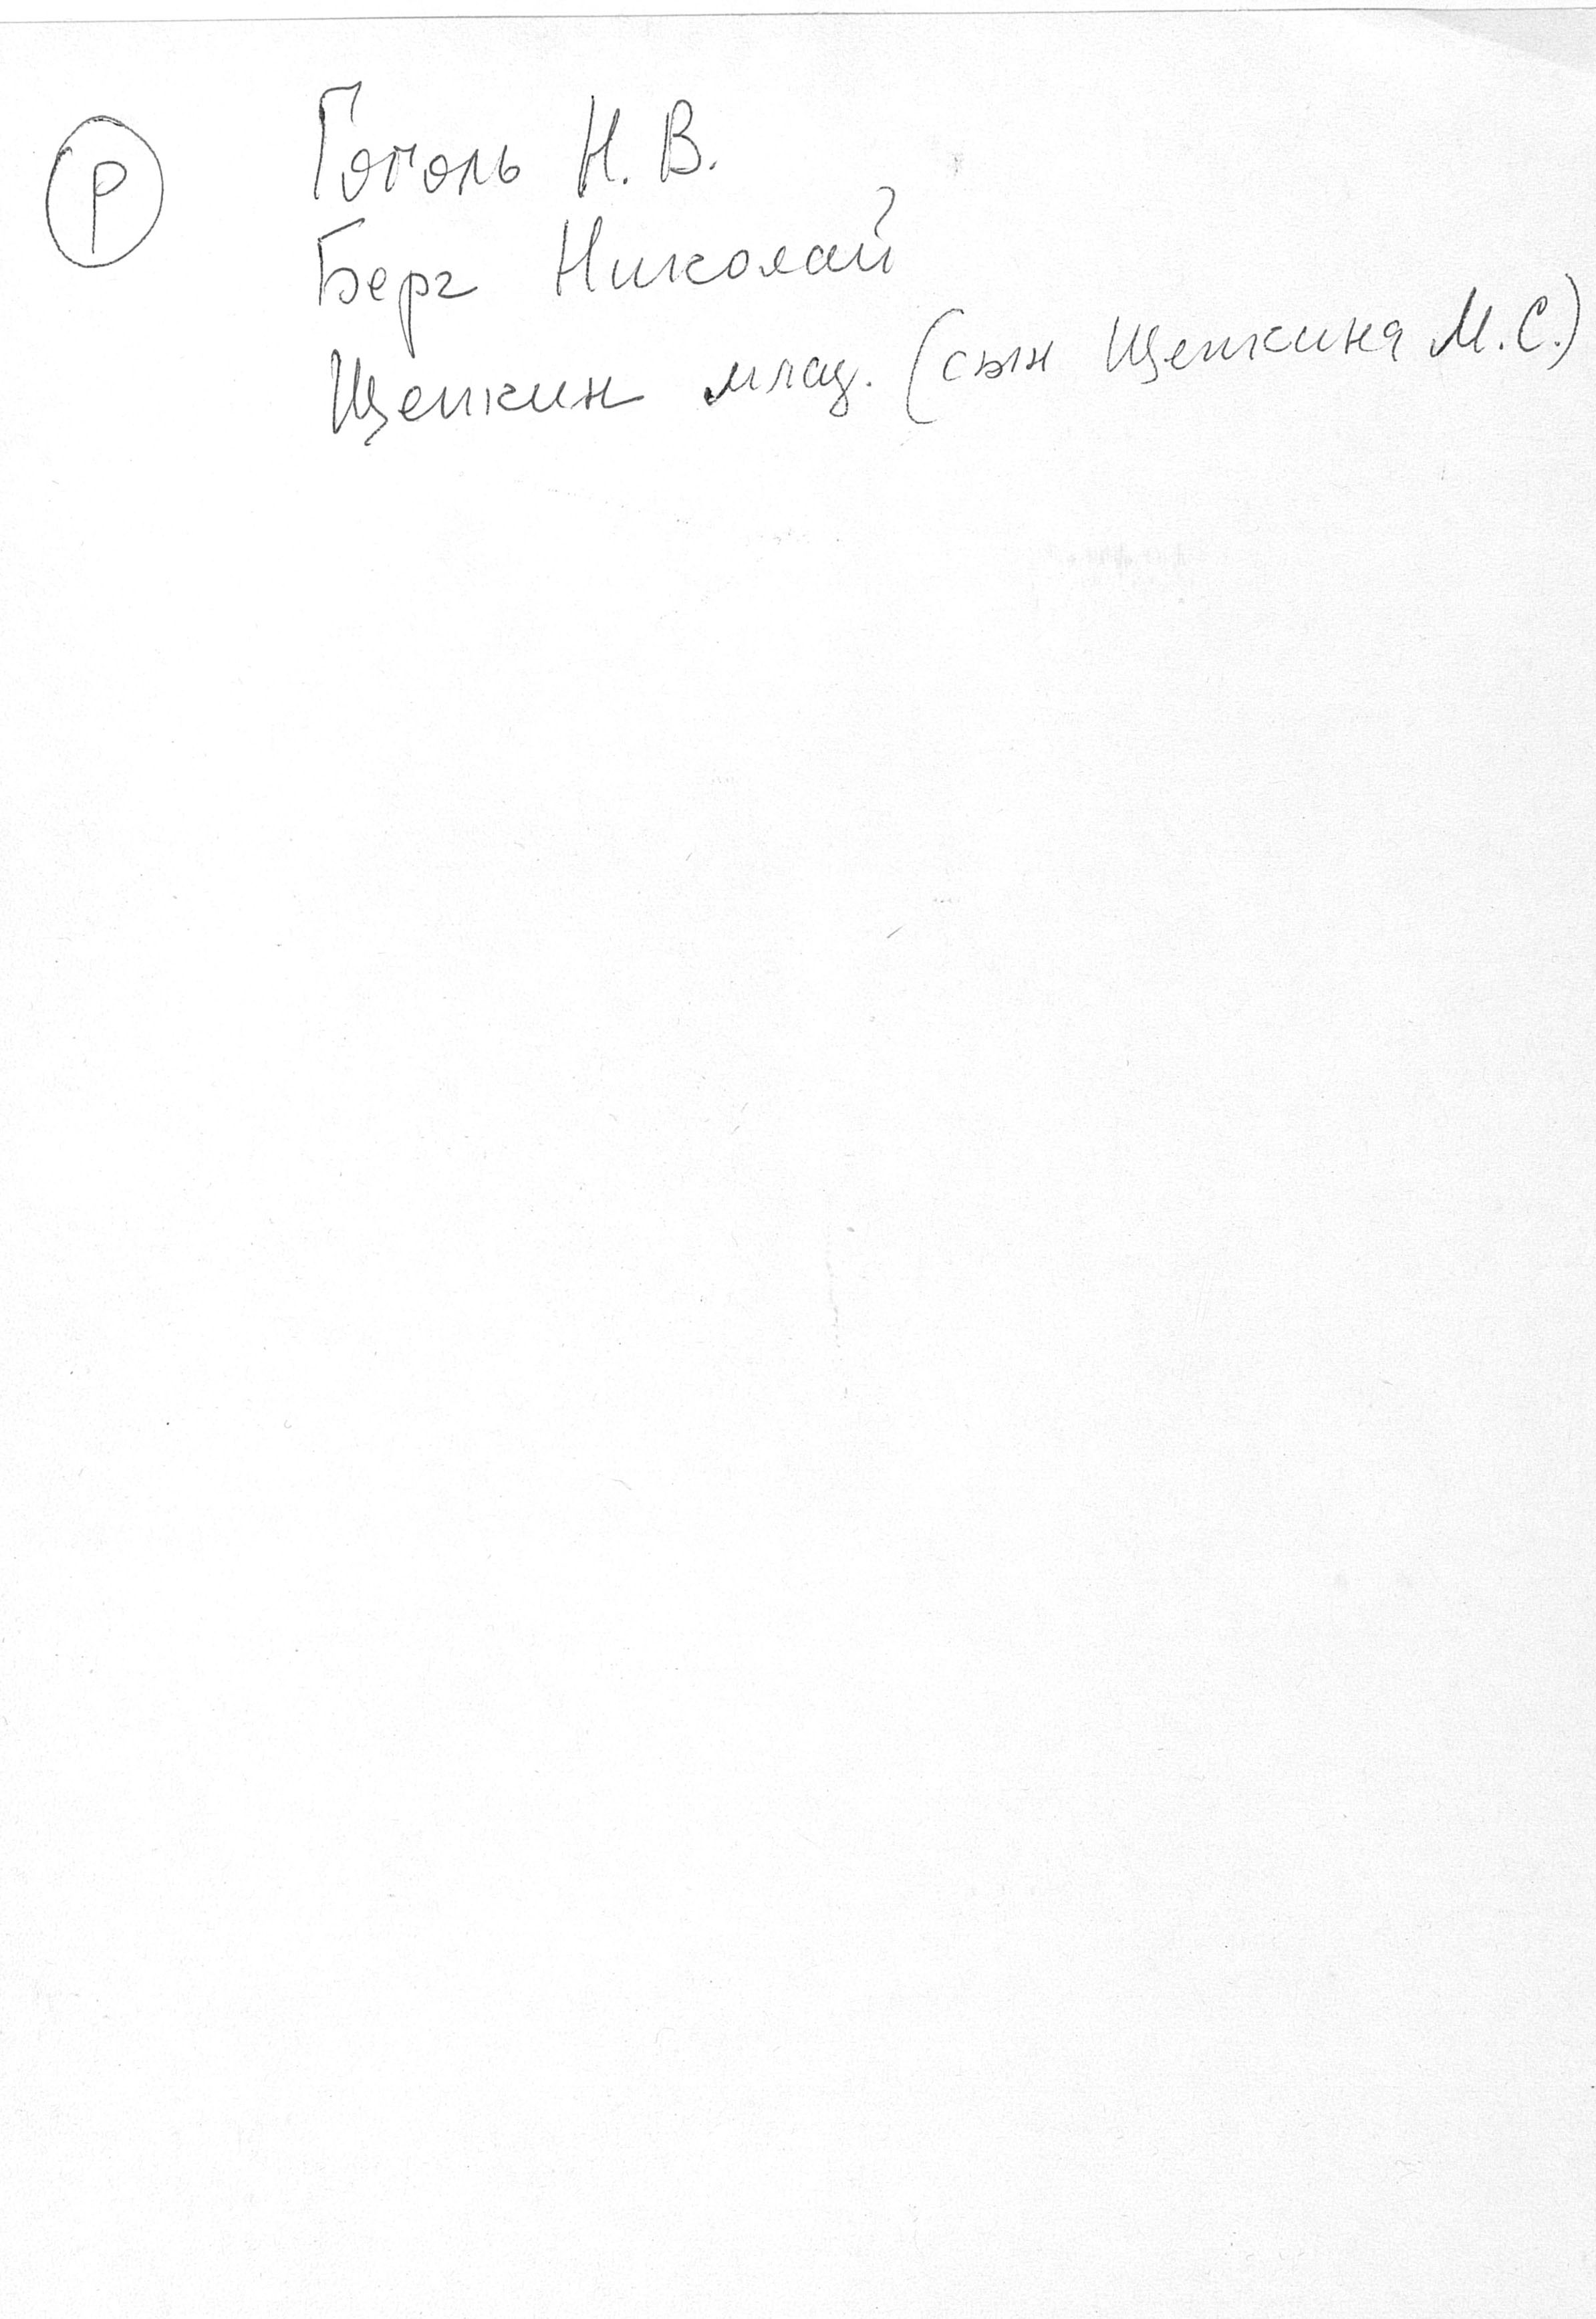 Р Гоголь Н. В.
Берг Николай
Щепкин млад. (сын Щепкина М. С.)